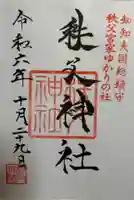 知知夫国総鎮守
秩父宮家ゆかりの社
秩父神社
令和六年十月二十九日
秩父神社